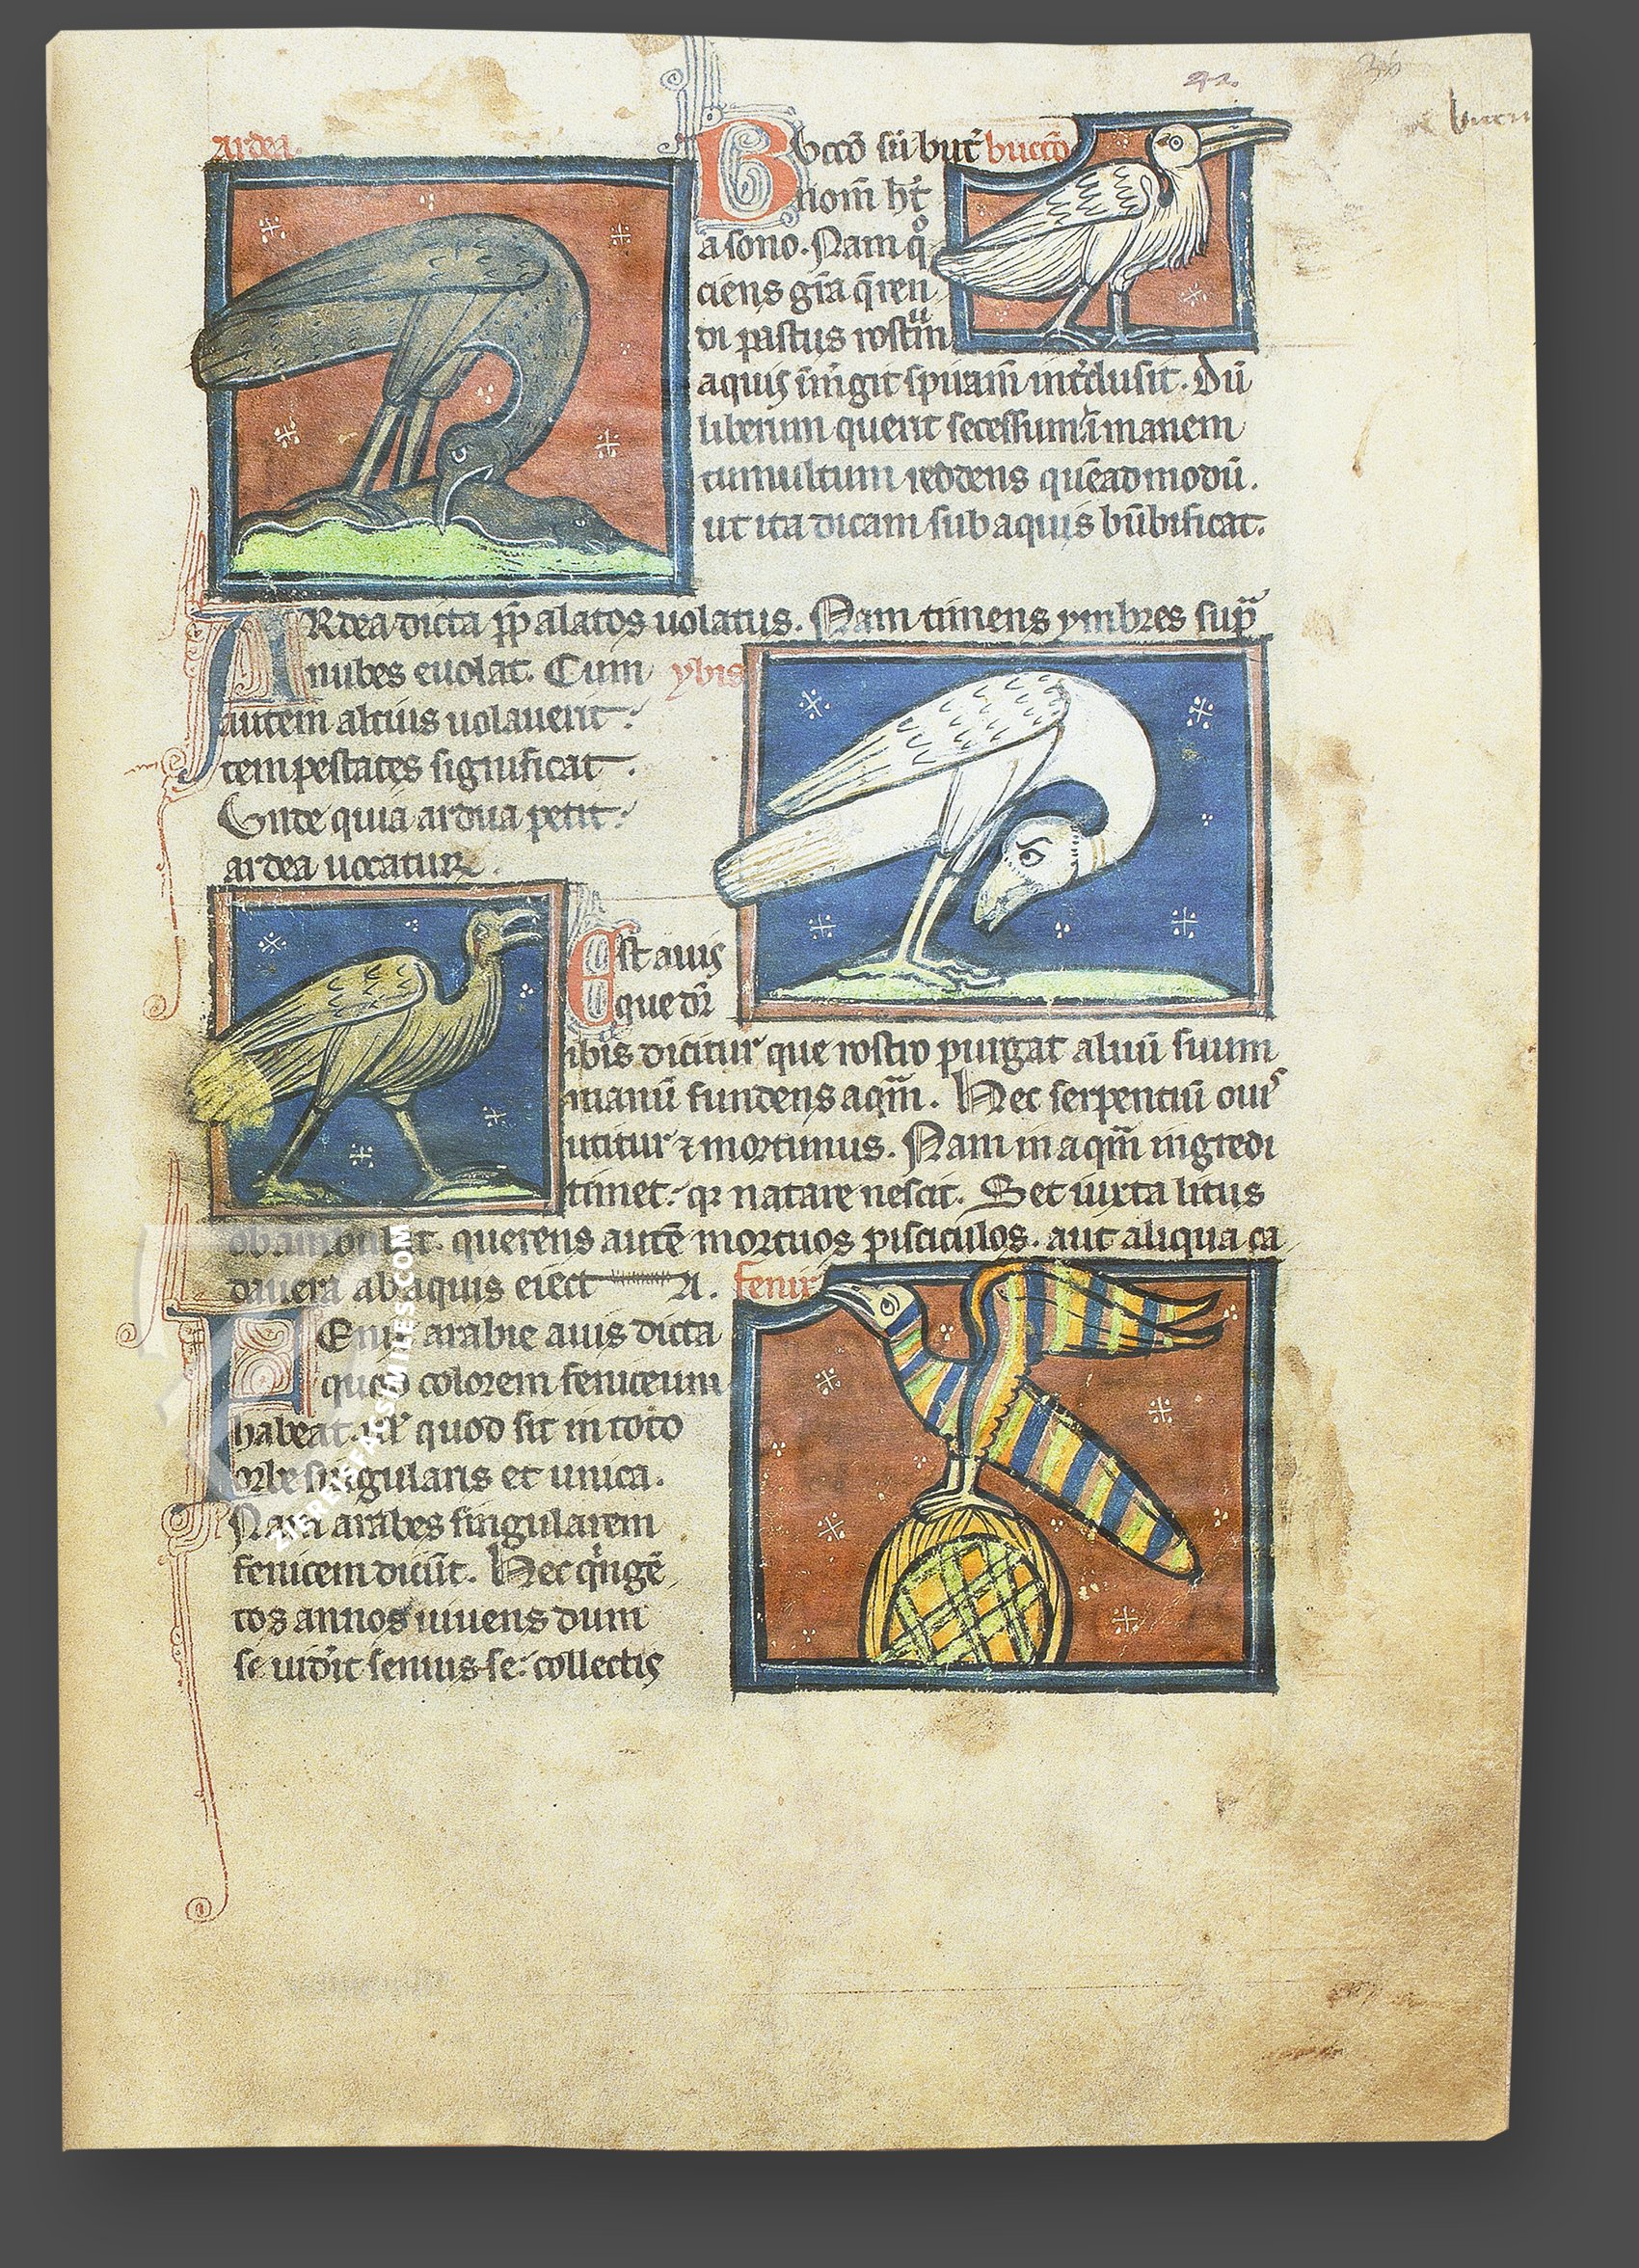 ardea.
Bccō siū but̄ buccō
nom̄ ht̄
a sono. Nam q̊
ciens gr̄a q̄ren
di pastus rostrū
aquis īmgit spuam int̄clusit. Dū
liberum querit secessum īmanem
tumultum reddens quēadmodū.
ut ita dicam sub aquis būbificat.
ARdea dicta pp̄ alatos uolatus. Nam timens ymbres sup̄
nubes euolat. Cum ybis
autem altius uolauerit
tempestates significat.
Vnde quia ardua petit
ardea uocatur.
Est auis
que dr̄
ibis dicitur que rostro purgat aluū suum
manū fundens aqm̄. Hec serpentiū ouis
utitur ⁊ mortinus. Nam in aqm̄ ingredi
timet. qr natare nescit. Set iuxta litus
obambulat. querens autē mortuos pisciculos. aut aliqua ca
dauera ab aquis eiecta. fenix
FEnix arabie auis dicta
quod colorem feniceum
habeat. ul̄ quod sit in toto
orbe singularis et unica.
Nam arabes singularem
fenicem dicūt. Hec q̇ngē
tos annos uiuens dum
se uid̄it seniusse. collectis
ZIEREIS-FACSIMILES.COM